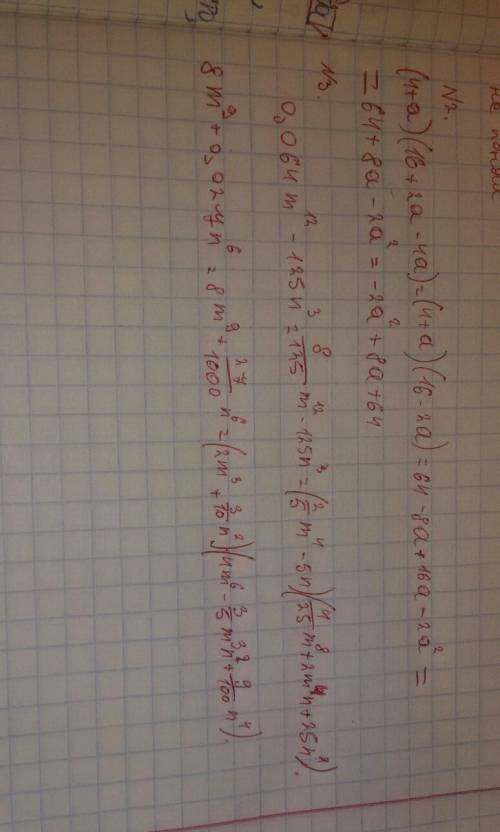 не
N2.
(4+a)(16+2a-4a)=(4+a)(16-2a)=64-8a+16a-2a²=
=64+8a-2a²=-2a²+8a+64
N3.
0,064m¹²-125n³=8/125 m¹²-125n³=(2/5 m⁴-5n)(4/25 m⁸+2m⁴n+25n²).
8m⁹+0,027n⁶=8m⁹+27/1000 n⁶=(2m³+3/10 n²)(4m⁶-3/5 m³n²+9/100 n⁴).